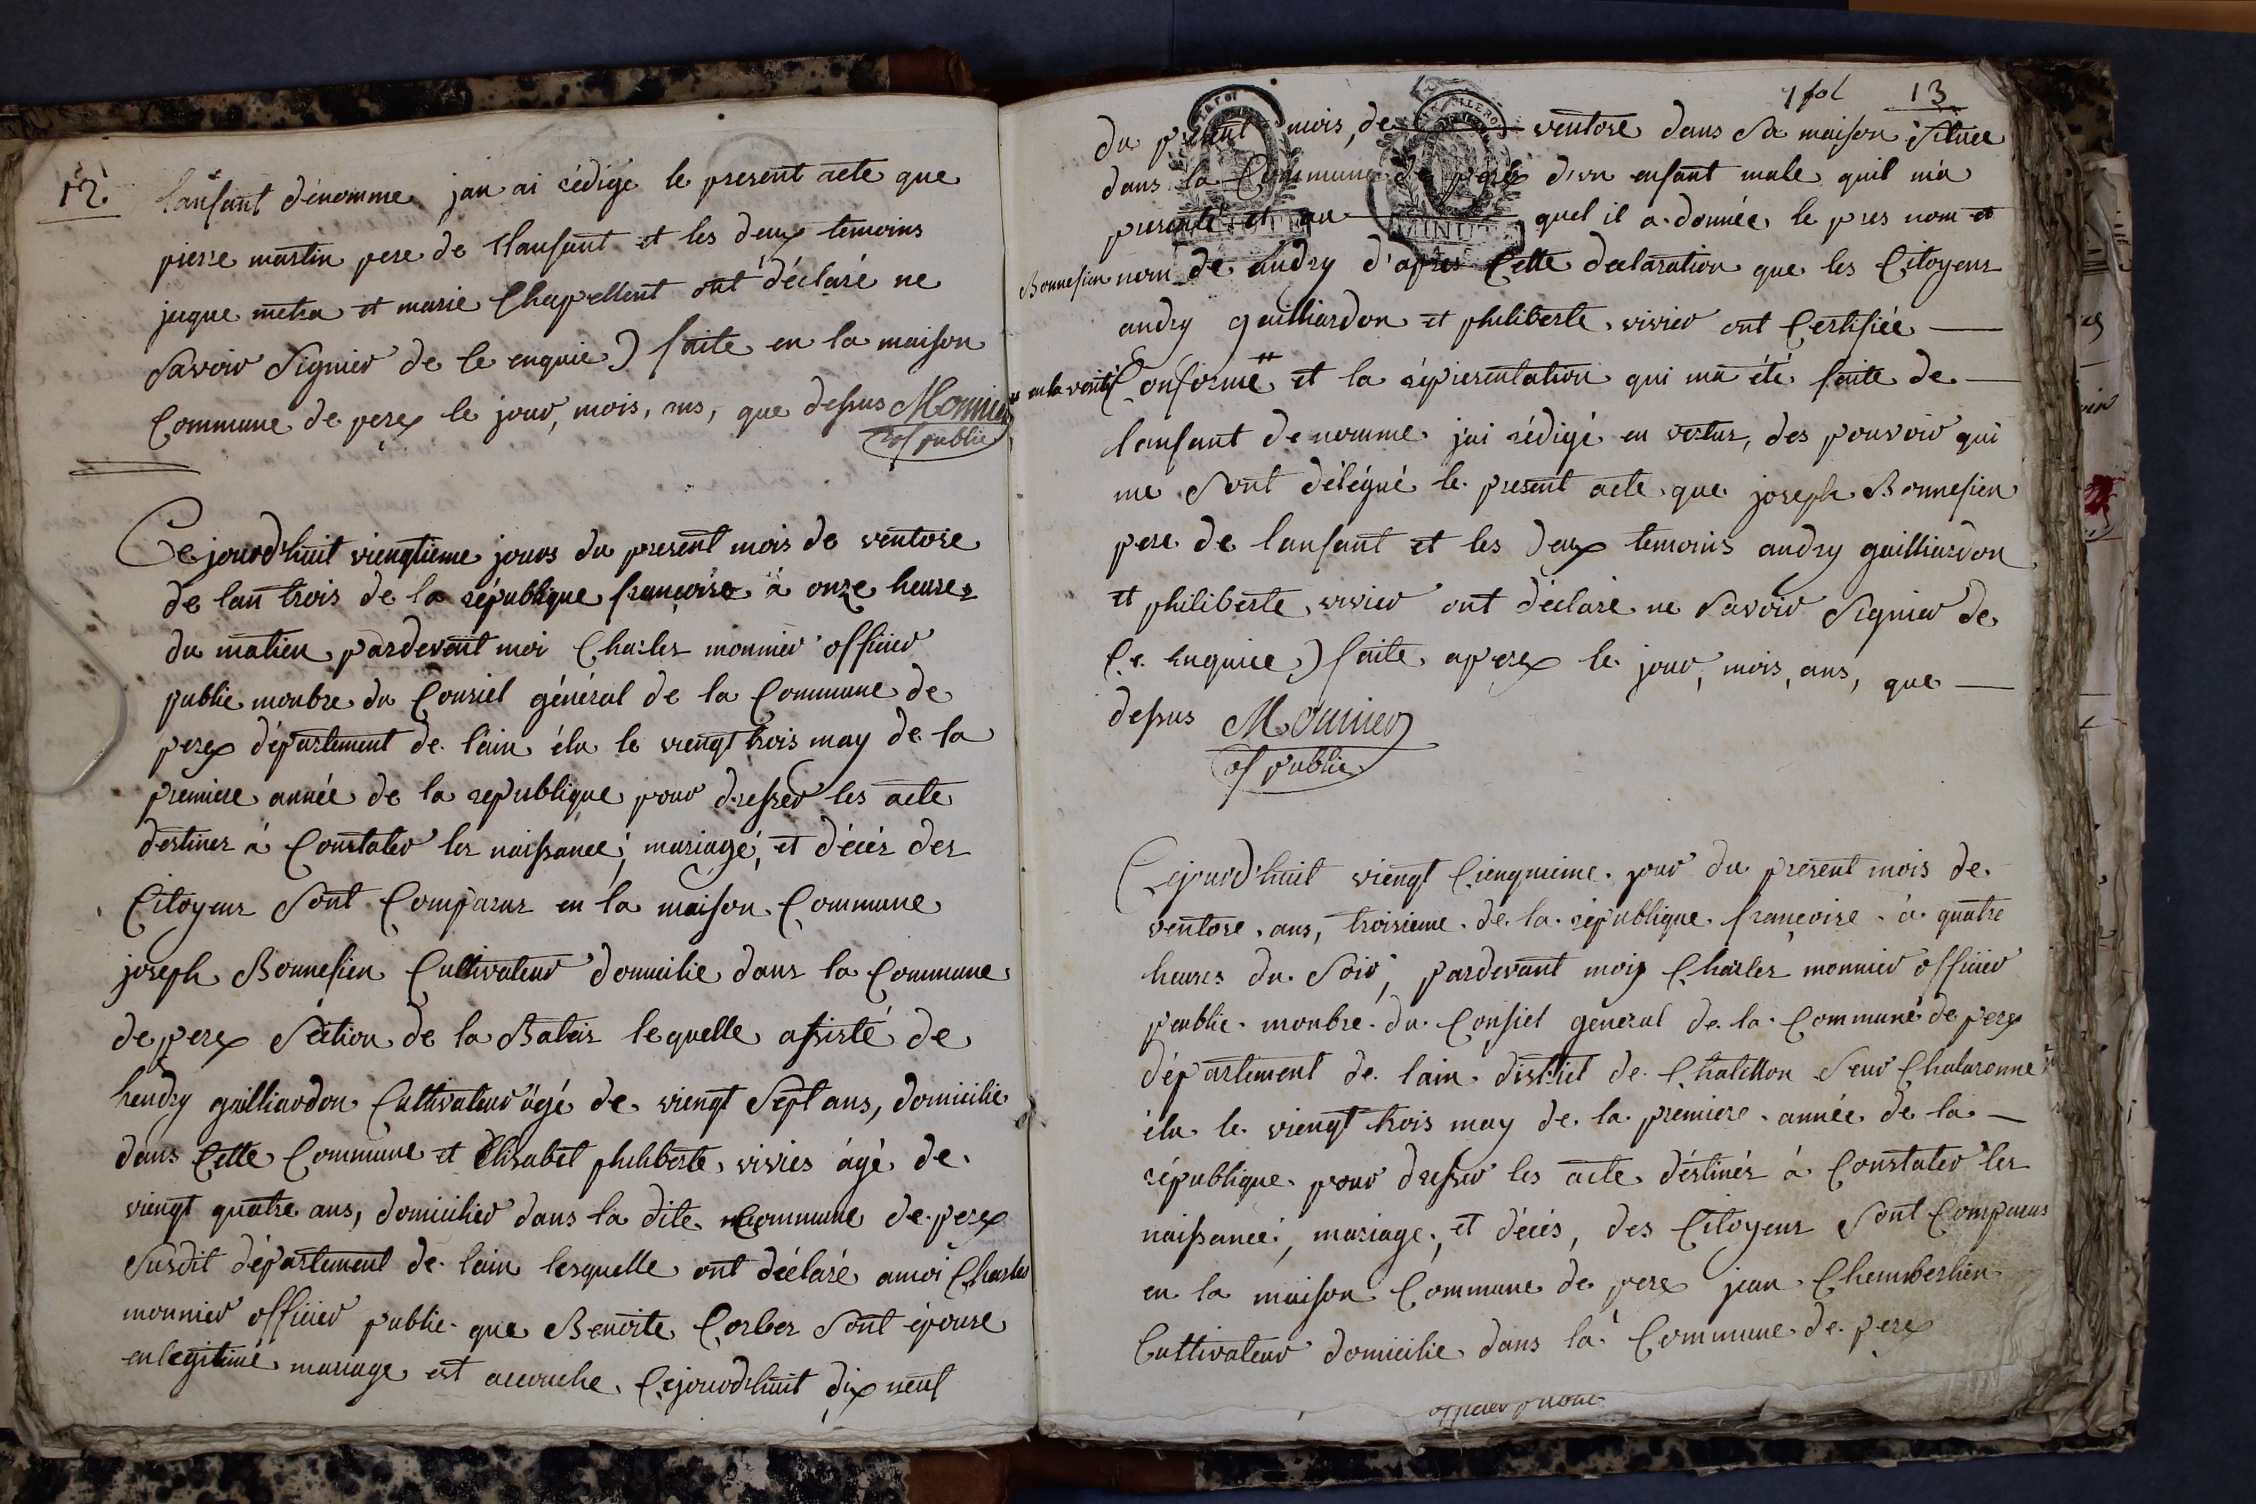 12
lanfant dénomme jan ai rédigé le present acte que
pierre martin pere de lanfant et les deux temoins
jacque metra et marie Chapellent ont déclaré ne
savoir signier de le enquie) faite en la maison
Commune de perex le jour, mois, ans, que dessus Monnier
of public
Cejourdhuit viengtième jours du present mois de ventose
de lan trois de la république françoise à onze heures
du matien pardevent moi Charles monnier officier
public monbre du Consiel général de la Commune de
perex département de lain élu le viengt trois may de la
premiere année de la republique pour dresser les acte
destines à Constater les naissance, mariagé, et décés des
Citoyens sont Comparus en la maison Commune
joseph Bonnesien Cultivateur domicilie dans la Commune
de perex séction de la Batair lequelle assisté de
hendry gailliardon Cultivateur âgé de viengt sept ans, domicilie
dans Cette Commune et Elisabet philiberte vivier âgé de
viengt quatre ans, domicilier dans la dite Commune de perex
susdit département de lain lesquelle ont déclaré amoi Charles
monnier officier public que Benoite Corber sont épouse
en légitime mariage est accouche Cejourdhuit dix neuf
1 fol 13
du present mois, de ventose dans sa maison située
dans la Commune de perex d'un enfant male quil ma
presenté et au quel il a donnée le pres nom et
Bonnesien nom de andry d'apres Cette declaration que les Citoyens
andry gailliardon et philiberte vivier ont Certifiée
# enla verité Conforme # et la répiesentation qui ma été faite de
lanfant denomme jai rédigé en vertus, des pouvoir qui
me sont délégué le present acte que joseph Bonnesien
pere de lanfant et les deux temoins andry gailliardon
et philiberte vivier ont déclaré ne savoir signier de
Ce enquiee) faite aperex le jour, mois, ans, que
dessus Monnier
of public
Cejourdhuit viengt Ciengmieme jour du present mois de
ventose ans, troisieme de la république françoise à quatre
heures du soir, pardevant moiy Charles monnier officier
peublic monbre du Consiel général de la Commune de perex
département de lain district de Chatillon seur Chalaronne
élu le viengt trois may de la premiere année de la
république pour dresser les acte déstinés à Constater les
naissance, mariage, et décés, des Citoyens sont Comparus
en la maison Commune de perex jean Chemberlien
Cultivateur domicilie dans la Commune de perex